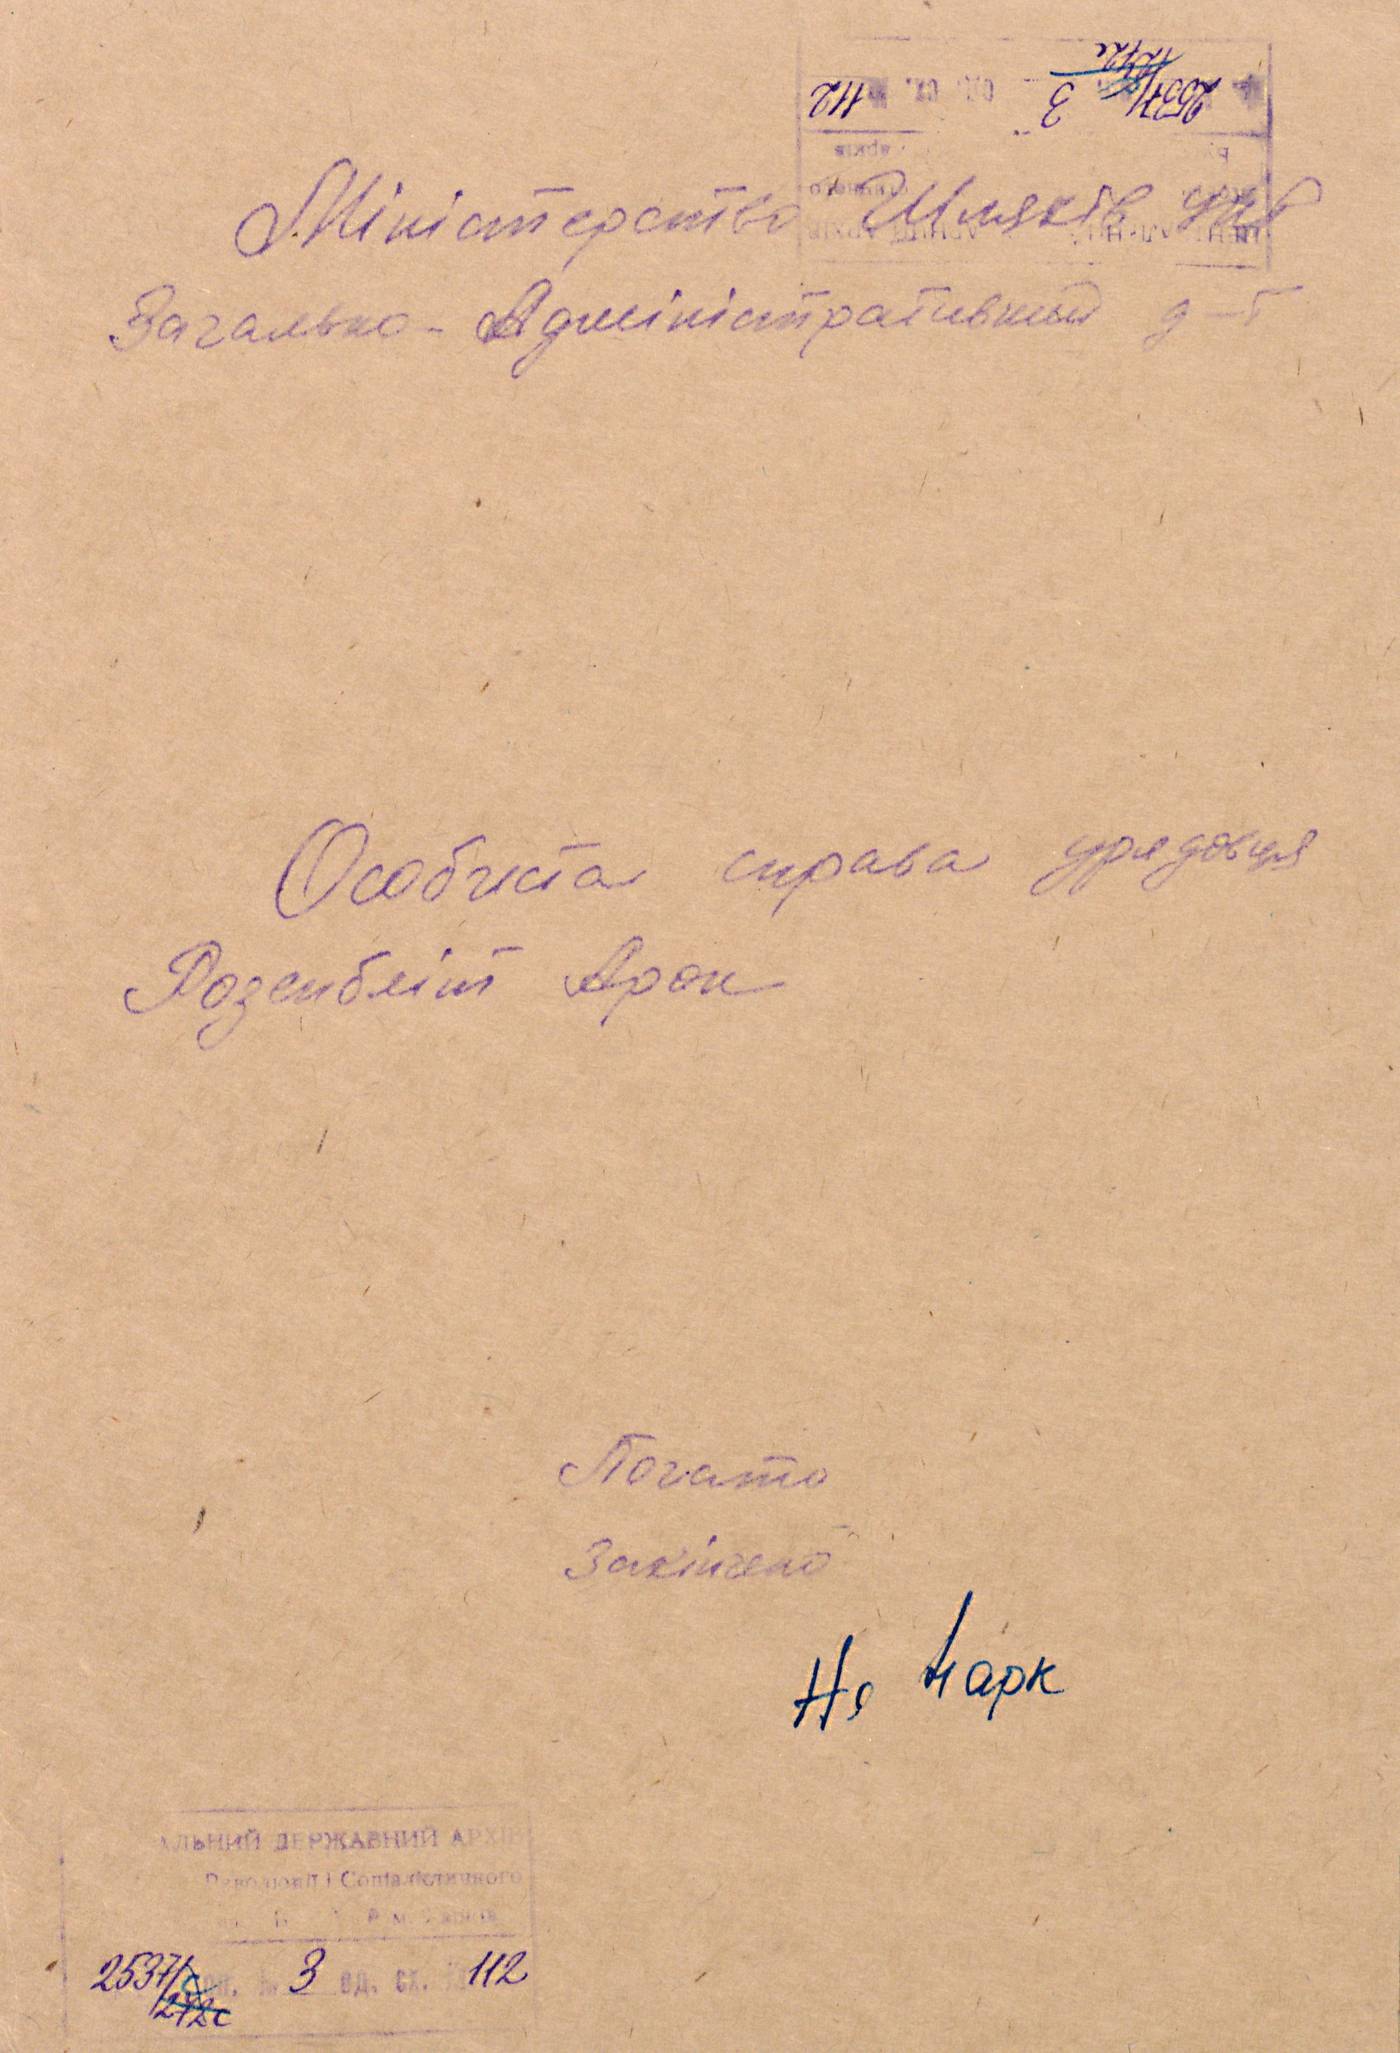 2537
3
112
Міністерство Шляхів УНР
Загально-Адміністративний д-т
Особиста справа урядовця
Розенбліт Арон
Почато
Закінчено
АЛЬНИЙ ДЕРЖАВНИЙ АРХІВ
Революції і Соціалістичного
2537 3 од. сх. 112
272с